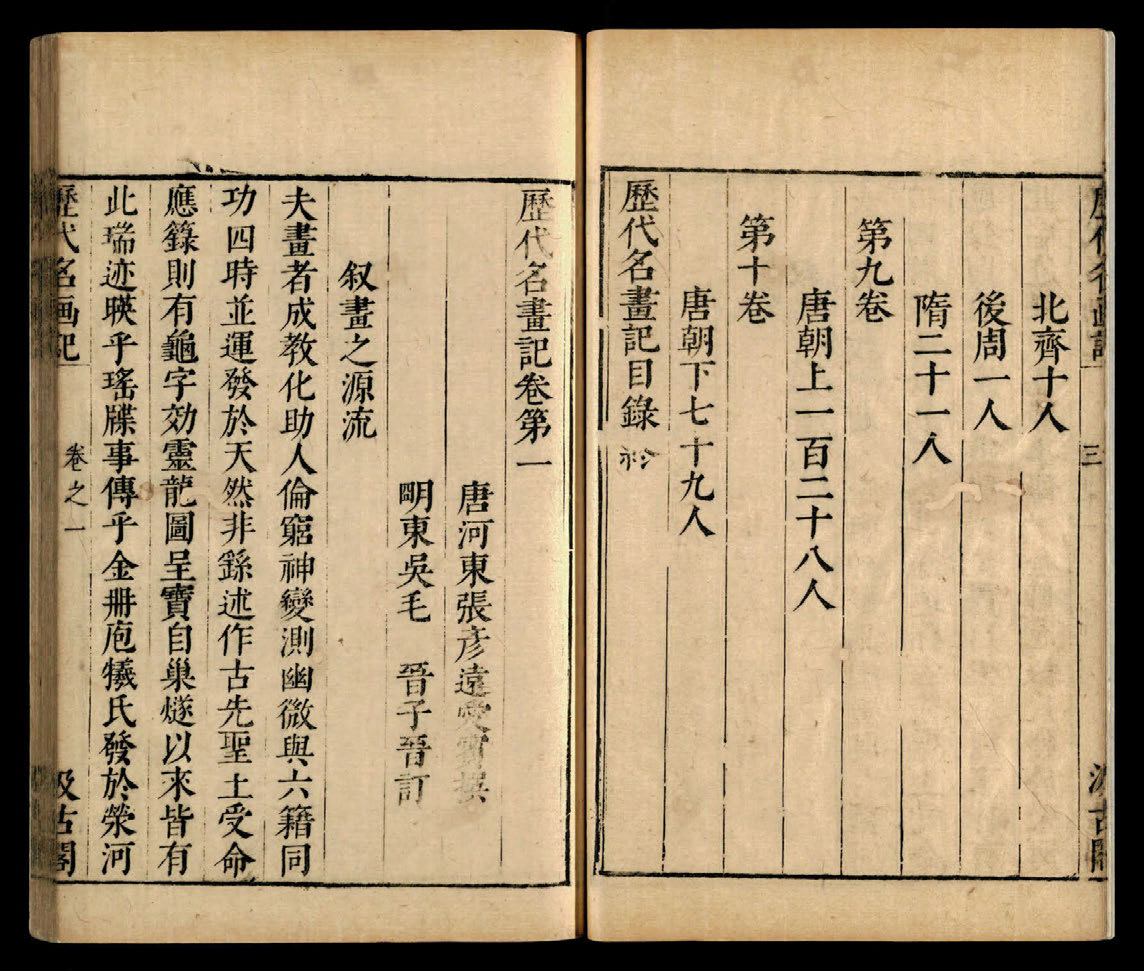 歷代名畫記
三
汲古閣
北齊十人
後周一人
隋二十一人
第九卷
唐朝上一百二十八人
第十卷
唐朝下七十九人
歷代名畫記目錄
歷代名畫記卷第一
唐河東張彥遠愛賓撰
明東吳毛 晉子晉訂
叙畫之源流
夫畫者成教化助人倫窮神變測幽微與六籍同
功四時並運發於天然非繇述作古先聖王受命
應籙則有龜字効靈龍圖呈寶自巢燧以來皆有
此瑞迹暎乎瑤牒事傳乎金冊庖犧氏發於滎河
歷代名画記
卷之一
汲古閣